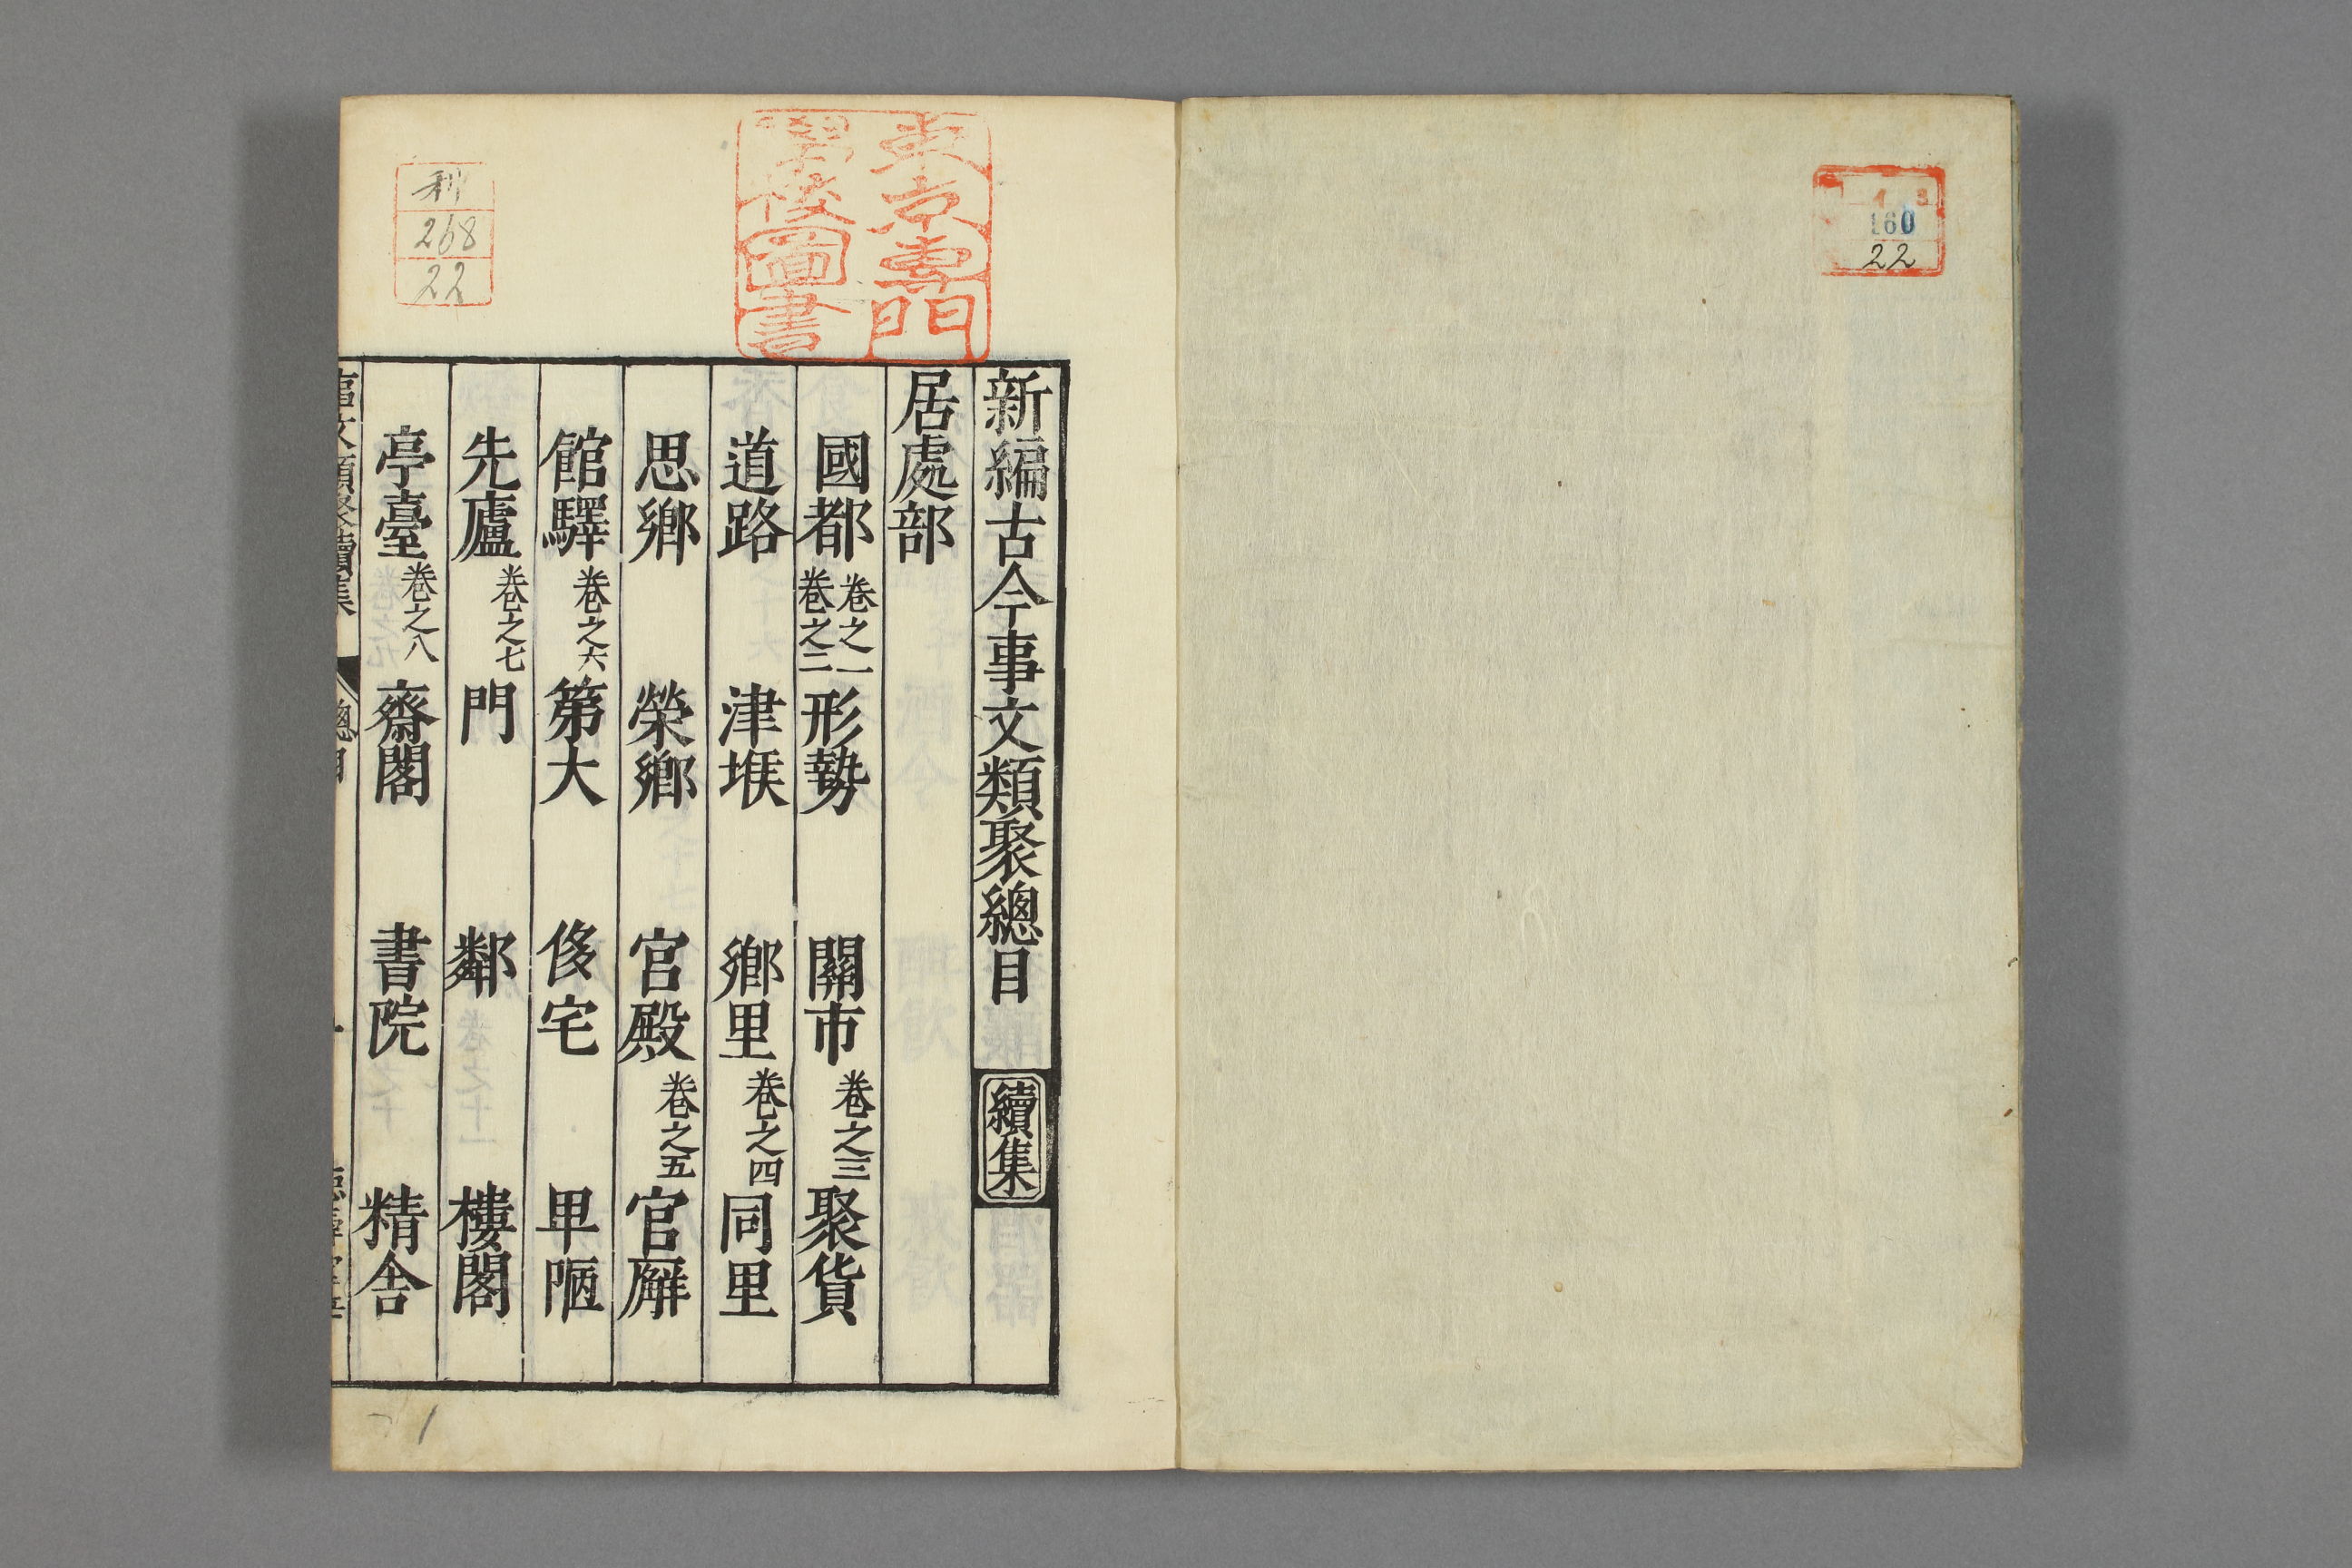 160
22
東京專門
學校圖書
268
22
新編古今事文類聚總目 續集
居處部
國都 卷之一 卷之二 形勢 關市 卷之三 聚貨
道路 津堠 鄉里 卷之四 同里
思鄉 榮鄉 官殿 卷之五 官廨
館驛 卷之六 第大 侈宅 卑陋
先廬 卷之七 門 鄰 樓閣
亭臺 卷之八 齋閣 書院 精舍
事文類聚續集 總目
1